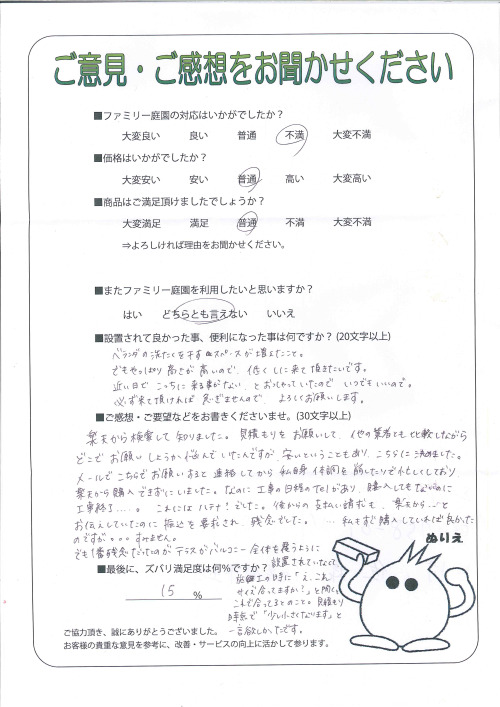 ご意見・ご感想をお聞かせください
■ファミリー庭園の対応はいかがでしたか?
大変良い 良い 普通 不満 大変不満
■価格はいかがでしたか?
大変安い 安い 普通 高い 大変高い
■商品はご満足頂けましたでしょうか?
大変満足 満足 普通 不満 大変不満
⇒よろしければ理由をお聞かせください。
■またファミリー庭園を利用したいと思いますか?
はい どちらとも言えない いいえ
■設置されて良かった事、便利になった事は何ですか?(20文字以上)
ベランダの洗たくを干すスペースが増えたこと。
でもやっぱり高さが高いので、低くしに来て頂きたいです。
近い日でこっちに来る事がない、とおっしゃっていたので いつでもいいので。
必ず来て頂ければ 急ぎませんので、よろしくお願いします。
■ご感想・ご要望などをお書きくださいませ。(30文字以上)
楽天から検索して知りました。見積もりをお願いして、他の業者とも比較しながら
どこでお願いしようか悩んでいたんですが、安いということもあり、こちらに決めました。
メールでこちらでお願いすると連絡してから私自身 体調を崩したりで忙しくしており
楽天から購入できずにいました。なのに工事の日程のTelがあり、購入してもないのに
工事終了…。これにはハテナ?でした。後からの支払い請求も、楽天から…と
お伝えしていたのに 振込を要求され、残念でした。…私もすぐ購入していれば良かった
のですが。。。すみません。
でも1番残念だったのが テラスがバルコニー全体を覆うように
設置されていなくて
施工の時に「え、これ
サイズ合ってますか?」と聞くと
これで合ってるとのこと。見積もり
時点で「少し小さくなります」と
一言欲しかったです。
■最後に、ズバリ満足度は何%ですか?
15 %
ぬりえ
ご協力頂き、誠にありがとうございました。
お客様の貴重な意見を参考に、改善・サービスの向上に活かして参ります。